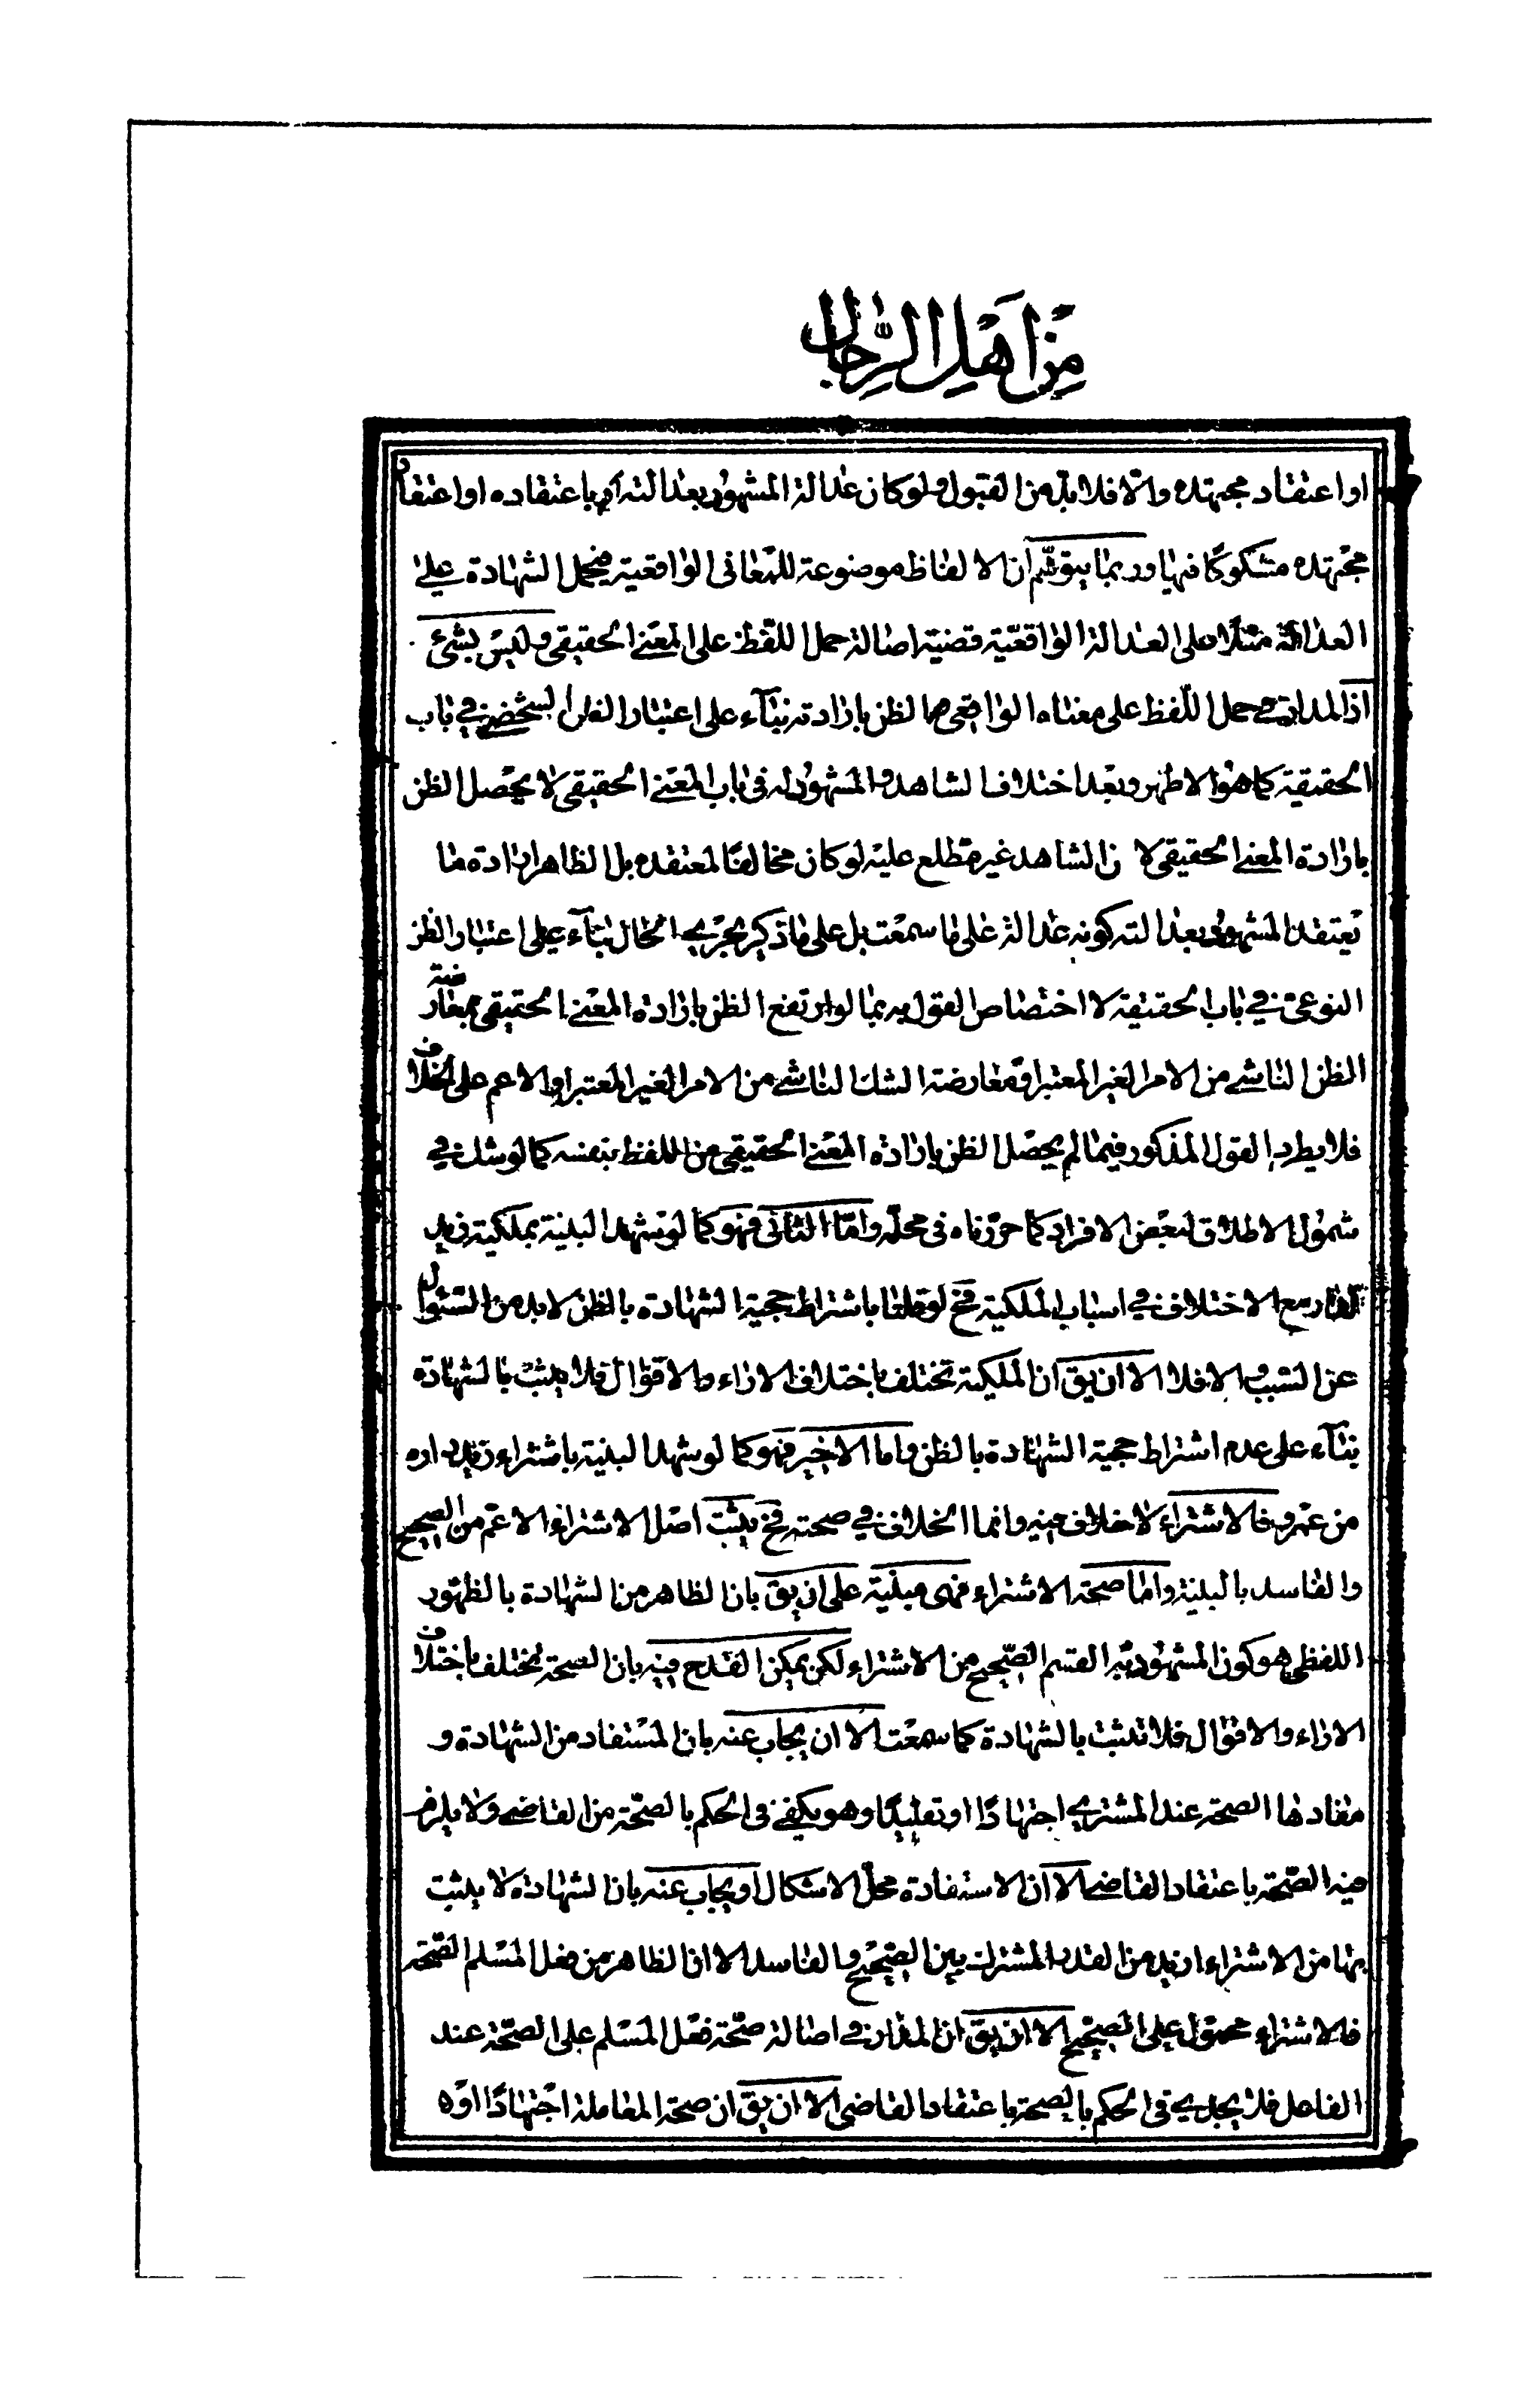 من اهل الرجال
او اعتقاد مجتهده والا فلا بد من القبول ولو كان عدالة المشهود بعدالته باعتقاده او اعتقاد
مجتهده مشكوكا فيها وربما يتوهم ان الالفاظ موضوعة للمعانى الواقعية فيحمل الشهادة على
العدالة مثلا على العدالة الواقعية قضية اصالة حمل اللفظ على المعنى الحقيقى وليس بشئ
اذ المدار فى حمل اللفظ على معناه الواقعى على الظن بارادته بناء على اعتبار الظن الشخصى فى باب
الحقيقة كما هو الاظهر وبعد اختلاف الشاهد والمشهود له فى باب المعنى الحقيقى لا يحصل الظن
بارادة المعنى الحقيقى لا ن الشاهد غير مطلع عليه لو كان مخالفا لمعتقده بل الظاهر ارادة ما
يعتقد المشهود بعدالته كونه عدالة على ما سمعت بل على ما ذكر يجرى الحال بناء على اعتبار الظن
النوعى فى باب الحقيقة لا اختصاص القول به بما لو ارتفع الظن بارادة المعنى الحقيقى بمعارضة
الظن الناشى من الامر الغير المعتبر او معارضة الشك الناشى من الامر الغير المعتبر او الاعم على الخلاف
فلا يطرد القول المذكور فيما لم يحصل الظن بارادة المعنى الحقيقى من اللفظ بنفسه كما لو شك فى
شمول الاطلاق لبعض الافراد كما حررناه فى محله واما الثانى فهو كما لو شهد البينة بملكية زيد
لدار مع الاختلاف فى اسباب الملكية فح لو قلنا باشتراط حجية الشهادة بالظن لا بد من السئوال
عن السبب والا فلا الا ان يق ان الملكية تختلف باختلاف الاراء والاقوال فلا يثبت بالشهادة
بناء على عدم اشتراط حجية الشهادة بالظن واما الاخير فهو كما لو شهد البينة باشتراء زيد داره
من عمرو فالاشتراء لا خلاف فيه وانما الخلاف فى صحته فح يثبت اصل الاشتراء الاعم من الصحيح
والفاسد بالبينة واما صحة الاشتراء فهى مبنية على ان يق بان الظاهر من الشهادة بالظهور
اللفظى هو كون المشهود به القسم الصحيح من الاشتراء لكن يمكن القدح فيه بان الصحة تختلف باختلاف
الاراء والاقوال فلا تثبت بالشهادة كما سمعت الا ان يجاب عنه بان المستفاد من الشهادة و
مفادها الصحة عند المشترى اجتهادا او تقليدا وهو يكفى فى الحكم بالصحة من القاضى ولا يلزم
فيه الصحة باعتقاد القاضى الا ان الاستفادة محل الاشكال او يجاب عنه بان الشهادة لا يثبت
بها من الاشتراء ازيد من القدر المشترك بين الصحيح والفاسد الا ان الظاهر من فعل المسلم الصحة
فالاشتراء محمول على الصحيح الا ان يق ان المدار فى اصالة صحة فعل المسلم على الصحة عند
الفاعل فلا يجدى فى الحكم بالصحة باعتقاد القاضى الا ان يق ان صحة المعاملة اجتهادا او